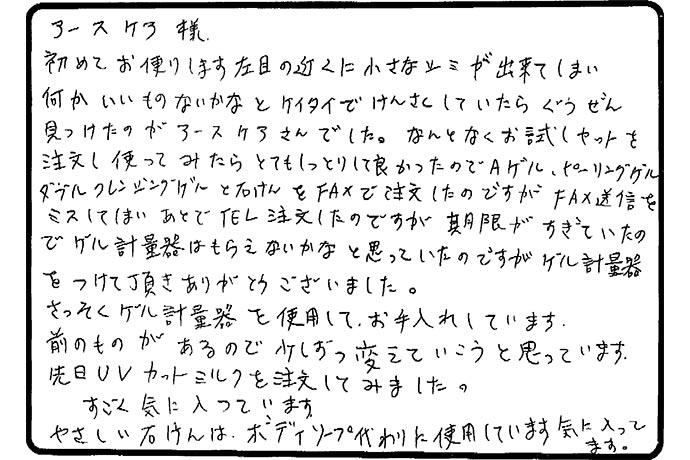 アースケア 様.
初めてお便りします左目の近くに小さなシミが出来てしまい
何かいいものないかなとケイタイでけんさくしていたらぐうぜん
見つけたのがアースケアさんでした。なんとなくお試しセットを
注文し使ってみたらとてもしっとりして良かったのでAゲル、ピーリングゲル
ダブルクレンジングゲルと石けんをFAXで注文したのですがFAX送信を
ミスしてしまいあとでTEL注文したのですが期限がすぎていたの
でゲル計量器はもらえないかなと思っていたのですがゲル計量器
をつけて頂きありがとうございました。
さっそくゲル計量器を使用して、お手入れしています.
前のものがあるので少しずつ変えていこうと思っています.
先日UVカットミルクを注文してみました。
すごく気に入っています
やさしい石けんは、ボディソープ代わりに使用しています気に入って
ます。